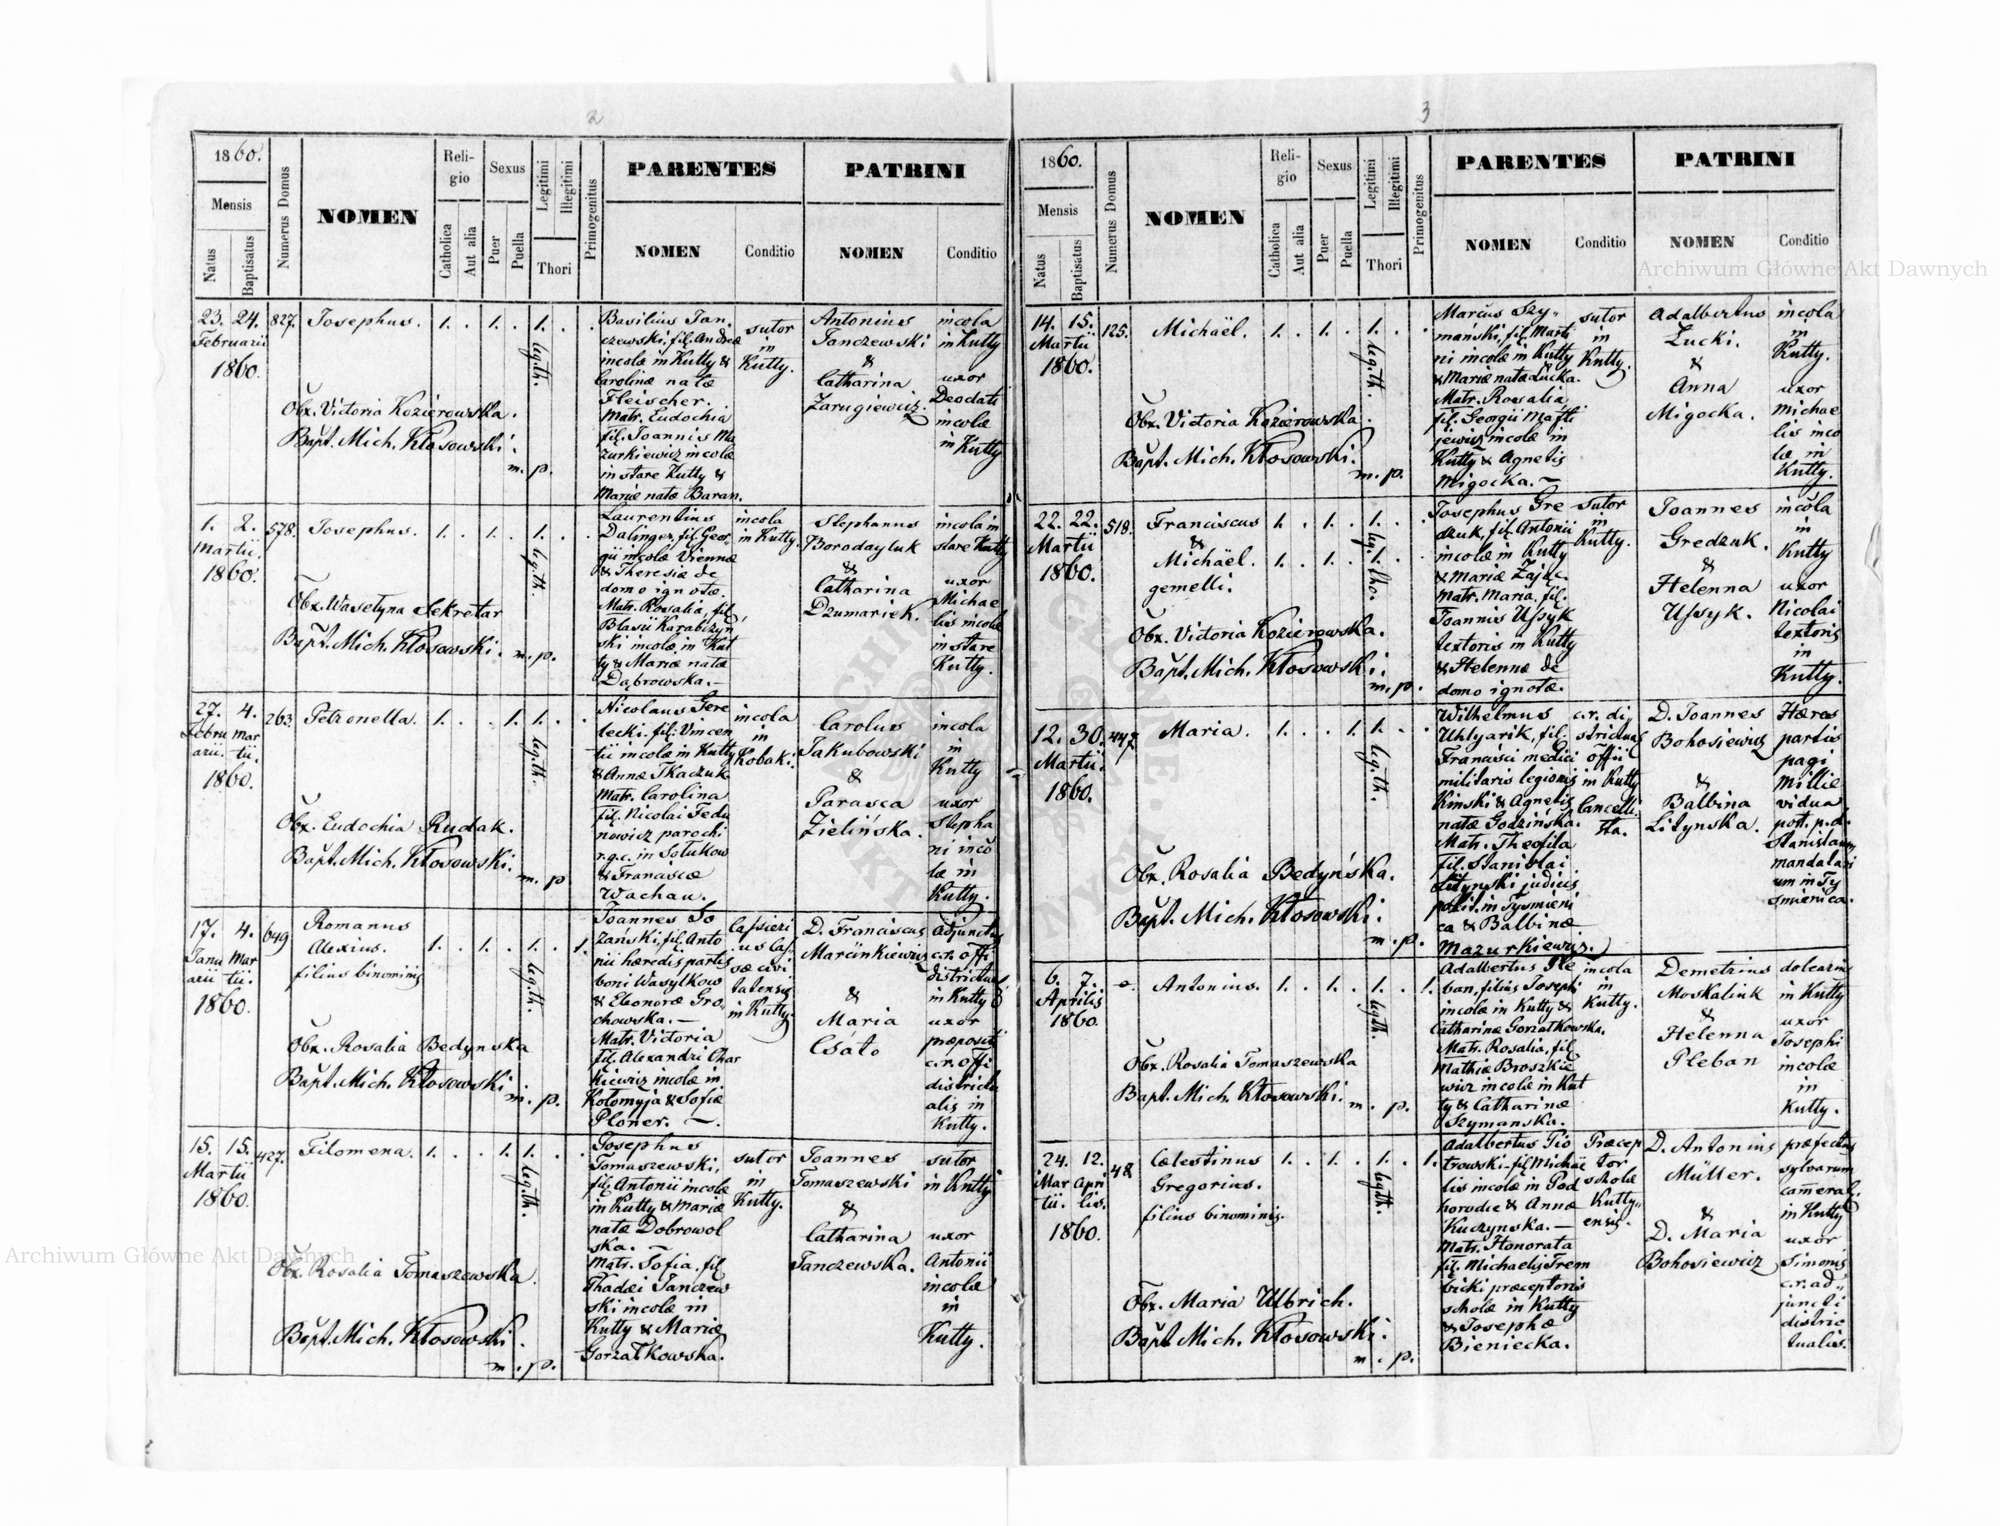 2
1860.
Mensis
Natus
Baptisatus
Numerus Domus
NOMEN
Religio
Catholica
Aut alia
Sexus
Puer
Puella
Legitimi
Illegitimi
Thori
Primogenitus
PARENTES
NOMEN
Conditio
PATRINI
NOMEN
Conditio
23. 24.
Februarii
1860.
827.
Josephus.
1. . 1. . 1. . .
leg. th.
Obx. Victoria Kozierowska.
Bapt. Mich. Kłosowski.
m. p.
Basilius Jan
czewski, fil. Andreæ
incolæ in Kutty &
Carolinæ natæ
Fleischer.
Matr. Eudochia
fil. Joannis Ma
zurkiewicz incolæ
in stare Kutty &
Mariæ natæ Baran.
sutor
in
Kutty.
Antonius
Janczewski
&
Catharina
Zarugiewicz.
incola
in Kutty
uxor
Deodati
incolæ
in Kutty
1. 2.
Martii.
1860.
578.
Josephus.
1. . 1. . 1. . .
leg. th.
Obx. Wasetyna Sekretar
Bapt. Mich. Kłosowski.
m. p.
Laurentius
Dalinger, fil. Geor-
gii incolæ Viennæ
& Theresiæ de
domo ignotæ.
Matr. Rosalia, fil.
Blasii Karabczyń
ski incolæ in Kut
ty & Mariæ natæ
Dąbrowska.—
incola
in Kutty.
Stephanus
Borodayluk
&
Catharina
Dzumariek.
incola in
stare Kutty
uxor
Michae
lis incolæ
in stare
Kutty.
27. 4.
Febru Mar
arii. tii.
1860.
263.
Petronella.
1. . . 1. 1. . .
leg. th.
Obx. Eudochia Rudak.
Bapt. Mich. Kłosowski.
m. p.
Nicolaus Gere
lecki. fil. Vincen
tii incolæ in Kutty
& Annæ Tkaczuk
Matr. Carolina
fil. Nicolai Fedu
nowicz parochi
r.g.c. in Sołukow
& Franciscæ
Wachau.
incola
in
Robaki.
Carolus
Jakubowski
&
Parasca
Zielińska.
incola
in
Kutty
uxor
Stepha
ni inco
læ in
Kutty.
17. 4.
Janu Mar
arii tii.
1860.
649
Romanus
Alexius.
filius binominis
1. . 1. . 1. . 1.
leg. th.
Obx. Rosalia Bedynska
Bapt. Mich. Kłosowski.
m. p.
Joannes Ło
zański, fil. Anto
nii hæredis partis
boni Wasylkow
& Eleonoræ Gro-
chowska.—
Matr. Victoria
fil. Alexandri Char
kiewicz incolæ in
Kołomyja & Sofiæ
Ploner. —.
Cassieri
us Cas
sæ civi
tatensis
in Kutty.
D. Franciscus
Marcinkiewicz
&
Maria
Csato
adjunctus
c.r. offi
districtual
in Kutty
uxor
præpositi
c.r. offi
districtu
alis in
Kutty.
15. 15.
Martii
1860.
427.
Filomena.
1. . . 1. 1. . .
leg. th.
Obx. Rosalia Tomaszewska.
Bapt. Mich. Kłosowski.
m. p.
Josephus
Tomaszewski,
fil. Antonii incolæ
in Kutty & Mariæ
natæ Dobrowol
ska. —
Matr. Sofia, fil.
Thadæi Janczew
ski incolæ in
Kutty & Mariæ
Gorzałkowska.
sutor
in
Kutty.
Joannes
Tomaszewski
&
Catharina
Janczewska.
sutor
in Kutty
uxor
Antonii
incolæ
in
Kutty.
3
1860.
Mensis
Natus
Baptisatus
Numerus Domus
NOMEN
Religio
Catholica
Aut alia
Sexus
Puer
Puella
Legitimi
Illegitimi
Thori
Primogenitus
PARENTES
NOMEN
Conditio
PATRINI
NOMEN
Conditio
14. 15.
Martii
1860.
125.
Michäel.
1. . 1. . 1. . .
leg. th.
Obx. Victoria Kozierowska.
Bapt. Mich. Kłosowski.
m. p.
Marcus Szy-
mański, fil. Marti
ni incolæ in Kutty
& Mariæ natæ Łucka.
Matr. Rosalia
fil. Georgii Mafti
jewicz incolæ in
Kutty & Agnetis
Migocka. —
sutor
in
Kutty.
Adalbertus
Łucki.
&
Anna
Migocka.
incola
in
Kutty.
uxor
Michae
lis inco
læ in
Kutty.
22. 22.
Martii
1860.
518.
Franciscus
&
Michäel.
gemelli.
1. . 1. . 1. . .
1. . 1. . 1.
leg. tho.
Obx. Victoria Kozierowska.
Bapt. Mich. Kłosowski.
m. p.
Josephus Gre
dzuk, fil. Antonii
incolæ in Kutty
& Mariæ Zając.
Matr. Maria, fil.
Joannis Ussyk
textoris in Kutty
& Helennæ de
domo ignotæ.
sutor
in
Kutty.
Joannes
Gredzuk.
&
Helenna
Ussyk.
incola
in
Kutty
uxor
Nicolai
textoris
in
Kutty.
12. 30.
Martii.
1860.
447.
Maria.
1. . . 1. 1. . .
leg. th.
Obx. Rosalia Bedyńska.
Bapt. Mich. Kłosowski.
m. p.
Wilhelmus
Uhlyarik, fil.
Francisci medici
militaris legionis
Kinski & Agnetis
natæ Godzińska.
Matr. Theofila
fil. Stanislai
Litynski judicis
polit. in Tysmieni
ca & Balbinæ
Mazurkiewicz.
c.r. di
strictual
offii
in Kutty
Cancelli
sta.
D. Joannes
Bohosiewicz
&
Balbina
Litynska.
Hæres
partis
pagi
Millie
vidua
post. p.d.
Stanislaum
mandatari
um in Ty
smienica.
6. 7.
Aprilis
1860.
Antonius.
1. . 1. . 1. . 1.
leg. th.
Obx. Rosalia Tomaszewska
Bapt. Mich. Kłosowski.
m. p.
Adalbertus Ple
ban, filius Josephi
incolæ in Kutty &
Catharinæ Gorzałkowska.
Matr. Rosalia, fil.
Mathiæ Broszkie
wicz incolæ in Kut
ty & Catharinæ
Szymanska.
incola
in
Kutty.
Demetrius
Moskaliuk
&
Helenna
Pleban
dolearius
in Kutty
uxor
Josephi
incolæ
in
Kutty.
24. 12.
Mar Apri
tii. lis.
1860.
48
Cælestinus
Gregorius.
filius binominis.
1. . 1. . 1. . 1.
leg. th.
Obx. Maria Ulbrich.
Bapt. Mich. Kłosowski.
m. p.
Adalbertus Pio
trowski. fil. Michäe
lis incolæ in Pod
horodce & Annæ
Kuczynska.—
Matr. Honorata
fil. Michaelis Trem
bicki præceptoris
scholæ in Kutty
& Josephæ
Bieniecka.
Præcep
tor
scholæ
Kutty-
ensis.
D. Antonius
Müller.
&
D. Maria
Bohosiewicz
præfectus
sylvarum
cameral.
in Kutty
uxor
Simonis
c.r. ad-
juncti
distric
tualis.
Archiwum Główne Akt Dawnych
Archiwum Główne Akt Dawnych